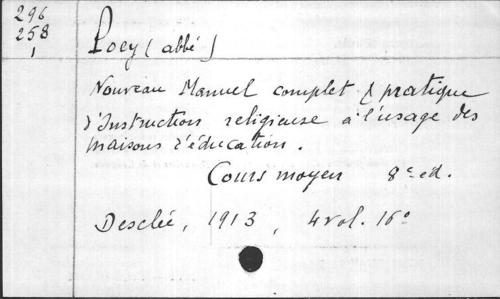 296
258
1
Poey (abbé)
Nouveau Manuel complet & pratique
d'Instruction religieuse à l'usage des
maisons d'éducation.
Cours moyen 8e ed.
Desclée, 1913, 4 vol. 16°